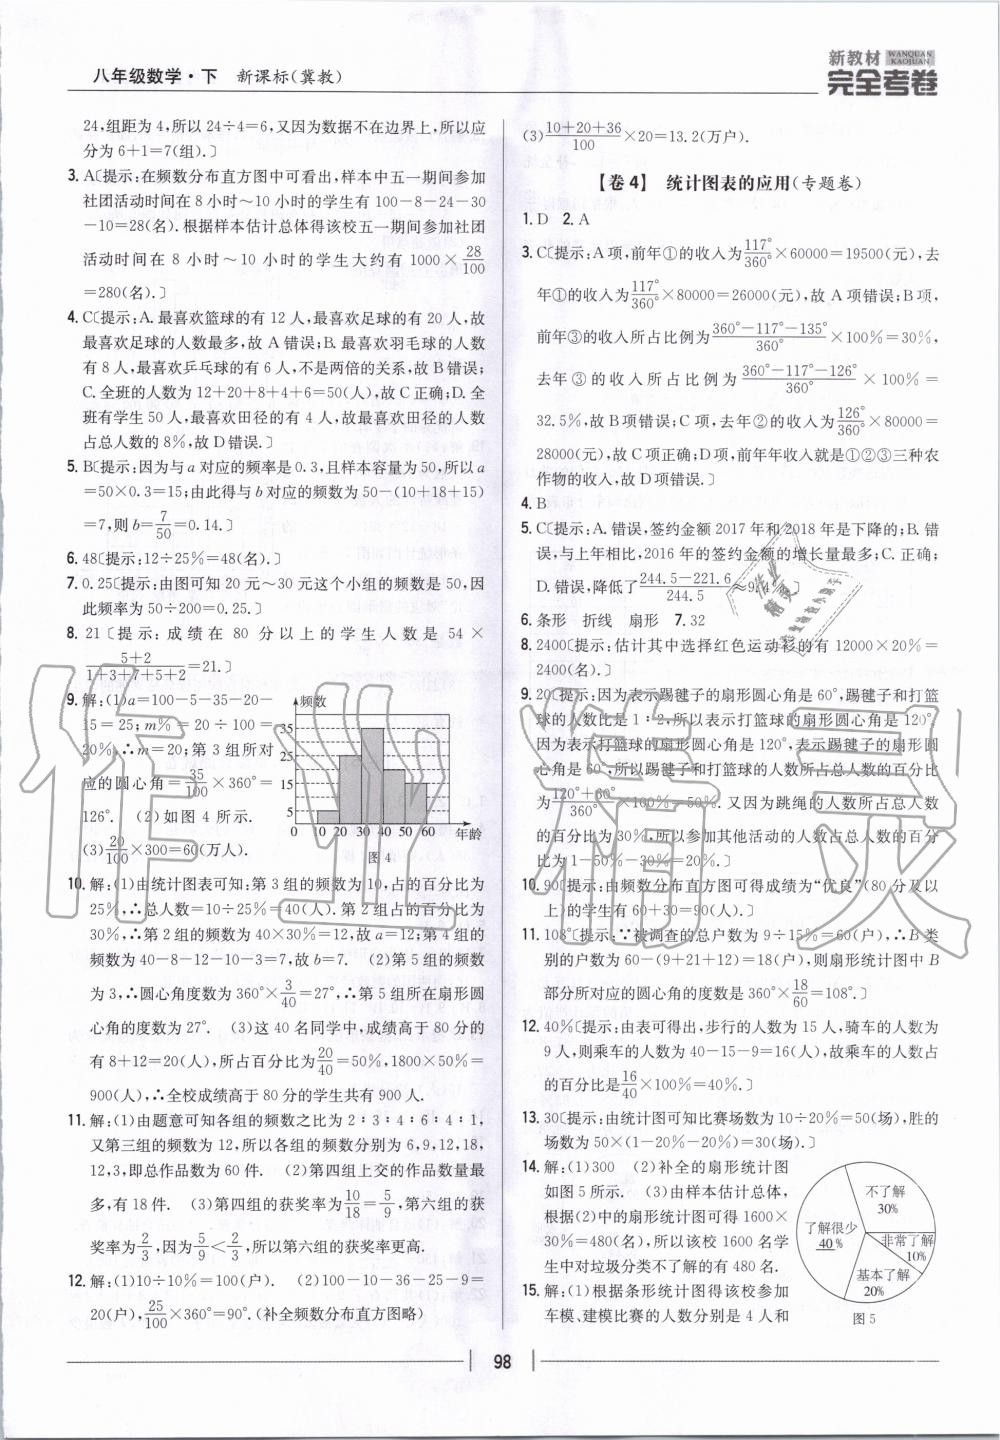 八年级数学·下 新课标(冀教)
新教材 WANQUAN KAOJUAN
完全考卷
24,组距为4,所以24÷4=6,又因为数据不在边界上,所以应
分为6+1=7(组).〕
3. A〔提示:在频数分布直方图中可看出,样本中五一期间参加
社团活动时间在8小时~10小时的学生有100-8-24-30
-10=28(名).根据样本估计总体得该校五一期间参加社团
活动时间在8小时~10小时的学生大约有1000×28/100
=280(名).〕
4. C〔提示:A.最喜欢篮球的有12人,最喜欢足球的有20人,故
最喜欢足球的人数最多,故A错误;B.最喜欢羽毛球的人数
有8人,最喜欢乒乓球的有6人,不是两倍的关系,故B错误;
C.全班的人数为12+20+8+4+6=50(人),故C正确;D.全
班有学生50人,最喜欢田径的有4人,故最喜欢田径的人数
占总人数的8%,故D错误.〕
5. B〔提示:因为与a对应的频率是0.3,且样本容量为50,所以a
=50×0.3=15;由此得与b对应的频数为50-(10+18+15)
=7,则b=7/50=0.14.〕
6. 48〔提示:12÷25%=48(名).〕
7. 0.25〔提示:由图可知20元~30元这个小组的频数是50,因
此频率为50÷200=0.25.〕
8. 21〔提示:成绩在80分以上的学生人数是54×
5+2/1+3+7+5+2=21.〕
9. 解:(1)a=100-5-35-20-
15=25;m%=20÷100=
20%,∴m=20;第3组所对
应的圆心角=35/100×360°=
126°. (2)如图4所示.
(3)20/100×300=60(万人).
频数
35
25
15
5
0 10 20 30 40 50 60 年龄
图4
10. 解:(1)由统计图表可知:第3组的频数为10,占的百分比为
25%,∴总人数=10÷25%=40(人).第2组占的百分比为
30%,∴第2组的频数为40×30%=12,故a=12;第4组的
频数为40-8-12-10-3=7,故b=7. (2)第5组的频数
为3,∴圆心角度数为360°×3/40=27°,∴第5组所在扇形圆
心角的度数为27°. (3)这40名同学中,成绩高于80分的
有8+12=20(人),所占百分比为20/40=50%,1800×50%=
900(人),∴全校成绩高于80分的学生共有900人.
11. 解:(1)由题意可知各组的频数之比为2∶3∶4∶6∶4∶1,
又第三组的频数为12,所以各组的频数分别为6,9,12,18,
12,3,即总作品数为60件. (2)第四组上交的作品数量最
多,有18件. (3)第四组的获奖率为10/18=5/9,第六组的获
奖率为2/3,因为5/9<2/3,所以第六组的获奖率更高.
12. 解:(1)10÷10%=100(户). (2)100-10-36-25-9=
20(户),25/100×360°=90°.(补全频数分布直方图略)
(3)10+20+36/100×20=13.2(万户).
【卷4】 统计图表的应用(专题卷)
1. D 2. A
3. C〔提示:A项,前年①的收入为117°/360°×60000=19500(元),去
年①的收入为117°/360°×80000=26000(元),故A项错误;B项,
前年③的收入所占比例为360°-117°-135°/360°×100%=30%,
去年③的收入所占比例为360°-117°-126°/360°×100%=
32.5%,故B项错误;C项,去年②的收入为126°/360°×80000=
28000(元),故C项正确;D项,前年年收入就是①②③三种农
作物的收入,故D项错误.〕
4. B
5. C〔提示:A.错误,签约金额2017年和2018年是下降的;B.错
误,与上年相比,2016年的签约金额的增长量最多;C.正确;
D.错误,降低了244.5-221.6/244.5≈9.4%.〕
6. 条形 折线 扇形 7. 32
8. 2400〔提示:估计其中选择红色运动衫的有12000×20%=
2400(名).〕
9. 20〔提示:因为表示踢毽子的扇形圆心角是60°,踢毽子和打篮
球的人数比是1∶2,所以表示打篮球的扇形圆心角是120°.
因为表示打篮球的扇形圆心角是120°,表示踢毽子的扇形圆
心角是60°,所以踢毽子和打篮球的人数所占总人数的百分比
为120°+60°/360°×100%=50%.又因为跳绳的人数所占总人数
的百分比为30%,所以参加其他活动的人数占总人数的百分
比为1-50%-30%=20%.〕
10. 90〔提示:由频数分布直方图可得成绩为“优良”(80分及以
上)的学生有60+30=90(人).〕
11. 108°〔提示:∵被调查的总户数为9÷15%=60(户),∴B类
别的户数为60-(9+21+12)=18(户),则扇形统计图中B
部分所对应的圆心角的度数是360°×18/60=108°.〕
12. 40%〔提示:由表可得出,步行的人数为15人,骑车的人数为
9人,则乘车的人数为40-15-9=16(人),故乘车的人数占
的百分比是16/40×100%=40%.〕
13. 30〔提示:由统计图可知比赛场数为10÷20%=50(场),胜的
场数为50×(1-20%-20%)=30(场).〕
14. 解:(1)300 (2)补全的扇形统计图
如图5所示. (3)由样本估计总体,
根据(2)中的扇形统计图可得1600×
30%=480(名),所以该校1600名学
生中对垃圾分类不了解的有480名.
15. 解:(1)根据条形统计图得该校参加
车模、建模比赛的人数分别是4人和
不了解
30%
了解很少
40%
非常了解
10%
基本了解
20%
图5
98
作业精灵